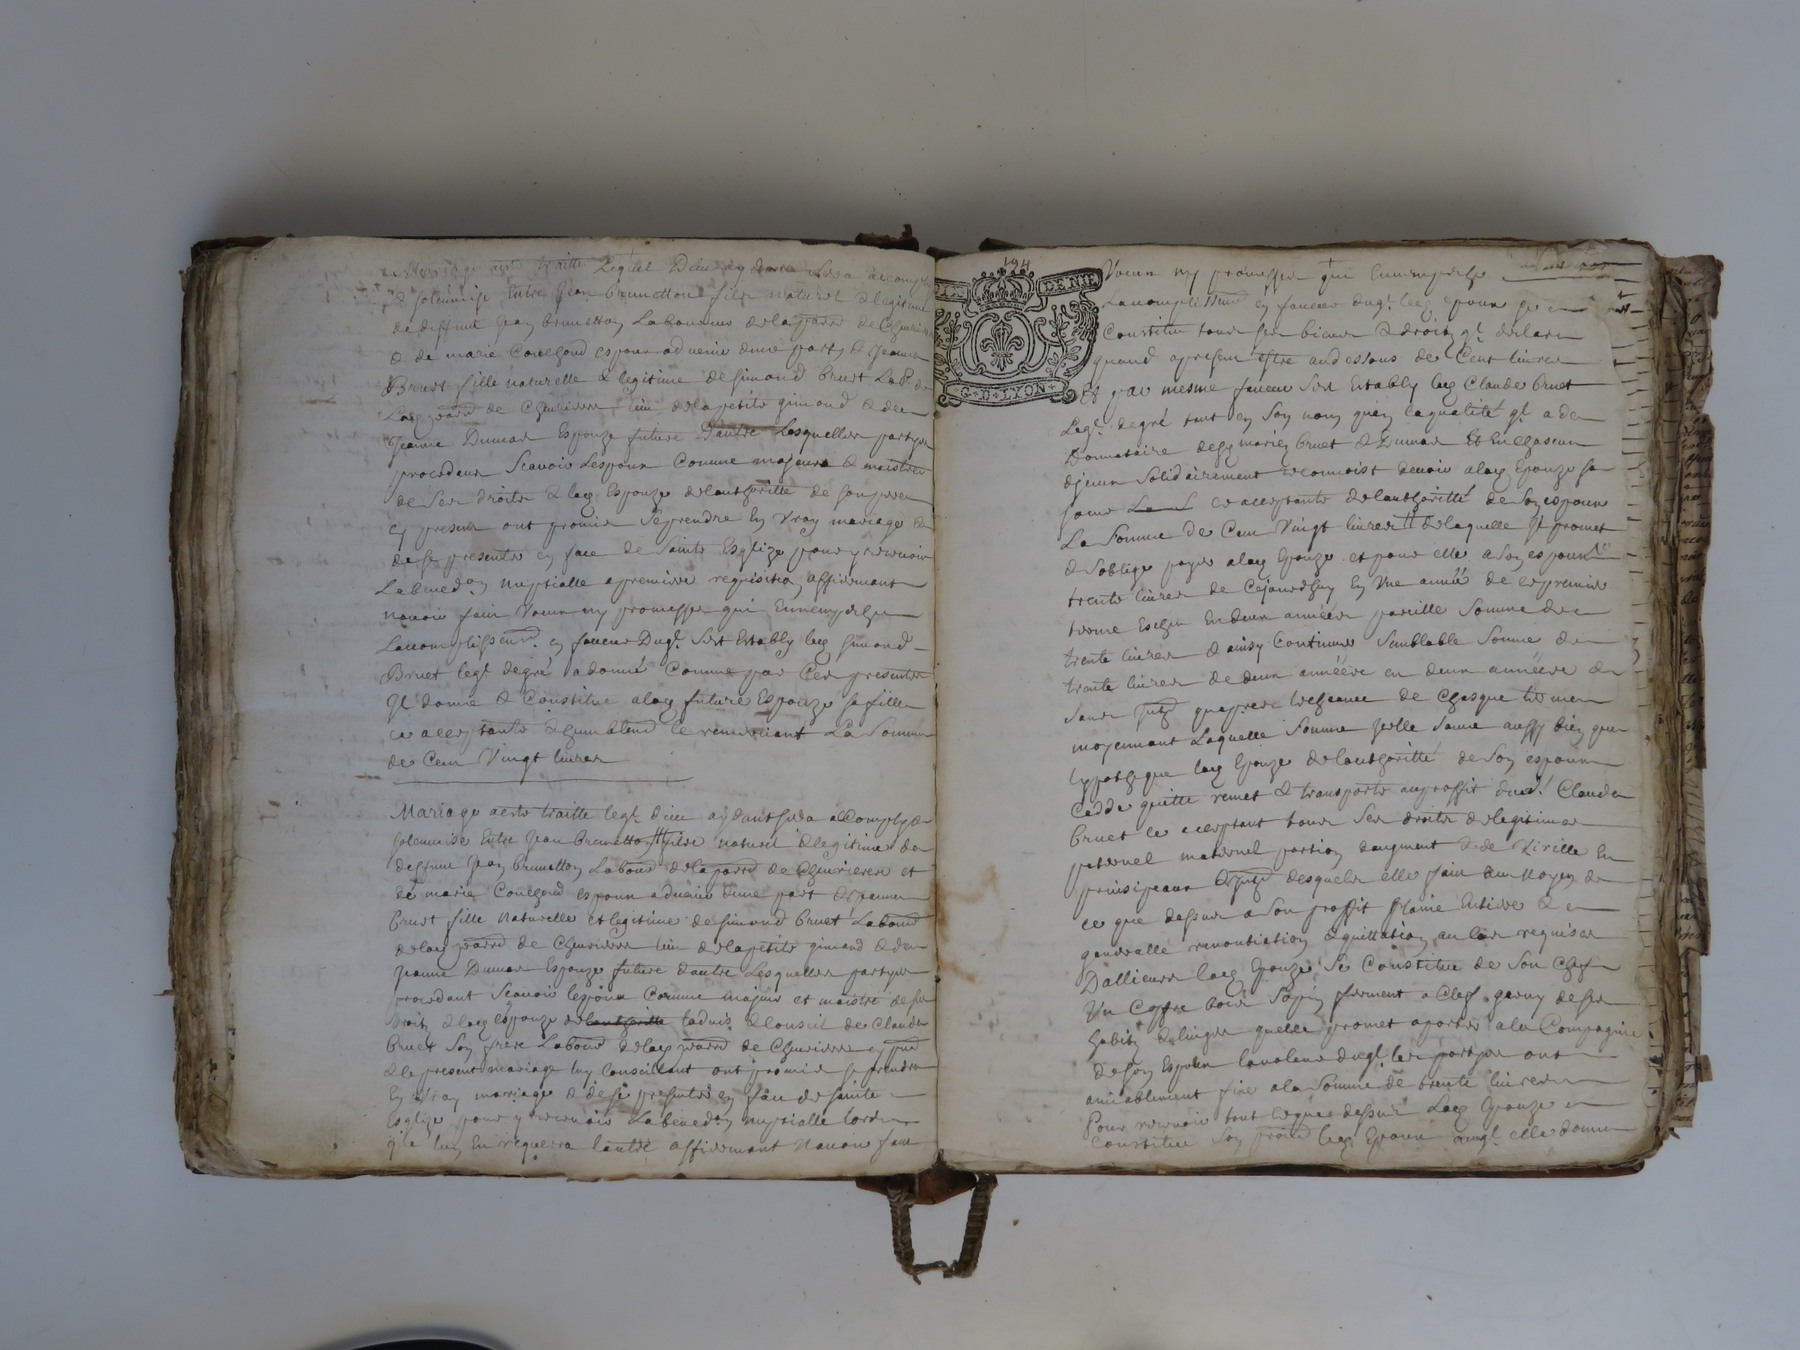 Mariage a esté traitté Lequel Dieu aydant sera accomply
& solennise Entre Jean brunetton filz naturel & legitime
de deffunt Jean brunetton Laboureur de la parre de Chevrieres
& de marie espoux advenir dune part & Jeanne
Bruet fille naturelle & legitime de Simond bruet Labr de
Lad parre de Chevrieres lieu de la petite gimond & de
Jeanne Dumas Espouze future Dautre Lesquelles partyes
procedans Scavoir Lespoux Comme majeur & maistre
de Ses droits & lad Espouze de lauthoritté de son pere
cy present ont promis Se prendre En Vray mariage &
de se presenter en face de Sainte Esglize pour y recevoir
La bened.on nuptialle a premiere requisition affirmant
navoir fait Voeux ny promesses qui Ennempeche
Laccomplissement en faveur Duql Sest Estably led Simond
Bruet leql degré a donné Comme par Ces presentes
Il donne & Constitue a lad future Espouze sa fille
ce acceptante & humblement le remerciant La Somme
de Cent Vingt livres
Mariage a esté traitté leql dieu aydant sera accomply &
solennise Entre Jean Brunetton filz naturel & legitime de
deffunt Jean brunetton Laboureur de la parre de Chevrieres et
de marie espoux advenir dune part & Jeanne
bruet fille Naturelle et legitime de Simond bruet Labour
de lad parre de Chevrieres lieu de la petite gimond & de
Jeanne Dumas Espouze future dautre Lesquelles partyes
procedant Scavoir lespoux Comme majeur et maistre de ses
droits & lad espouze de lauthoritté ladvis & Conseil de Claude
bruet Son frere Labour de lad parre de Chevrieres cy pnt
& le present mariage luy Conseillant ont promis se prendre
En Vray mariage & de se presenter en face de sainte
Esglize pour y recevoir La bened.on nuptialle lors
que lun En requerra lautre affirmant Navoir fait
194
GEN
DE
G·D·LYON
Voeux ny promesses qui Ennempeche
Laccomplissement en faveur duql led espoux se
Constitue tous ses biens & droits ql declare
quand a present Estre au dessous de Cent livres
Et par mesme faveur Sest Estably led Claude bruet
Leql degré tant en Son nom quen la qualité ql a de
Donnataire desd mariez bruet & Dumas Et En chascun
diceux Solidairement reconnoist devoir a lad Epouze sa
soeur ce acceptante de lauthoritté de Son espoux
La Somme de Cent Vingt livres de laquelle Il promet
& Soblige payer a lad Epouze et pour elle a Son espoux
trente livres de Cejourdhuy En Une année & ce premier
terme Escheu En deux années pareille Somme de
trente livres & ainsy Continuer Semblable Somme de
trente livres de deux années en deux années &
sans quapres Lecheance de Chasque terme
moyennant Laquelle Somme Jcelle Sauve aussy bien que
hyppotheque lad Epouze de lauthoritté de Son espoux
Cedde quitte remet & transporte au proffit dud. Claude
bruet ce acceptant tous Ses droits de legitimes
paternel maternel portion daugment & de Virille En
prinsipeaux desquels elle fait au moyen de
ce que dessus a Son proffit plainie Entiere &
generalle renontiation & quittation au Cas requises
Dallieurs lad Epouze Se Constitue de Son Chef
Un Coffre bois Sapin fermant a Clef garny de Ses
habits & linges quelle promet aporter a la Compagnie
de Son Espoux la valeur duql les partyes ont
amiablement fixé a la Somme de trente livres
Pour recevoir tout ce que dessus Lad Epouze
Constitue Son procur led Epoux auql elle donne